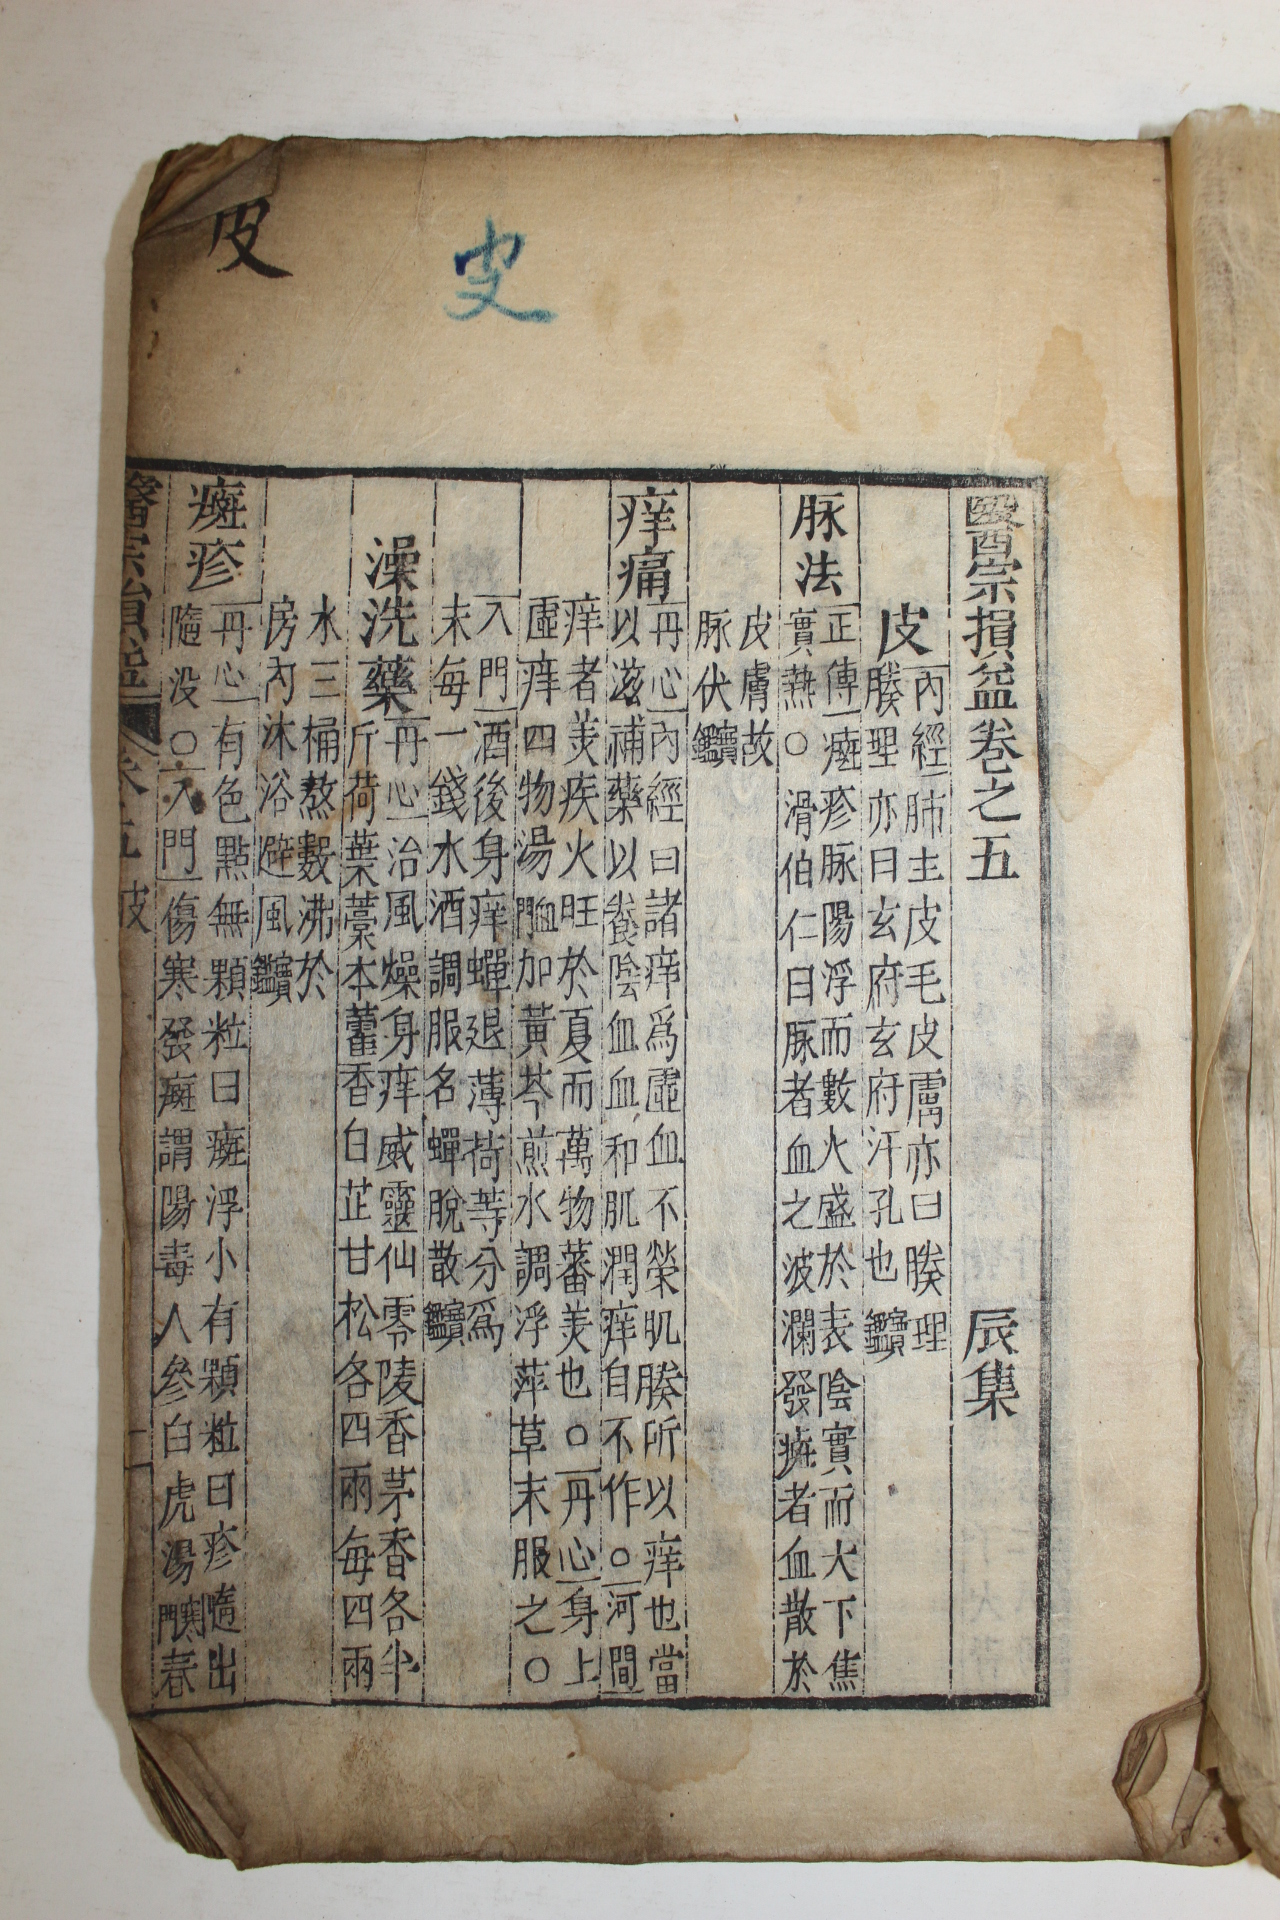 皮
皮
醫宗損益卷之五 辰集
皮
內經肺主皮毛皮膚亦曰腠理
腠理亦曰玄府玄府汗孔也寶鑑
脉法
正傳癍疹脉陽浮而數火盛於表陰實而大下焦
實熱○滑伯仁曰脉者血之波瀾發癍者血散於
皮膚故
脉伏寶鑑
痒痛
丹心內經曰諸痒爲虛血不榮肌腠所以痒也當
以滋補藥以養陰血血和肌潤痒自不作○河間
痒者羙疾火旺於夏而萬物蕃羙也○丹心身上
虛痒四物湯加黃芩煎水調浮萍草末服之○
入門酒後身痒蟬退薄荷等分爲
末每一錢水酒調服名蟬脫散寶鑑
澡洗藥
丹心治風燥身痒威靈仙零陵香茅香各半
斤荷葉藁本藿香白芷甘松各四兩每四兩
水三桶熬數沸於
房內沐浴避風寶鑑
癍疹
丹心有色點無顆粒曰癍浮小有顆粒曰疹隨出
隨没○入門傷寒發癍謂陽毒人參白虎湯寒門春
醫宗損益 卷五 皮 一